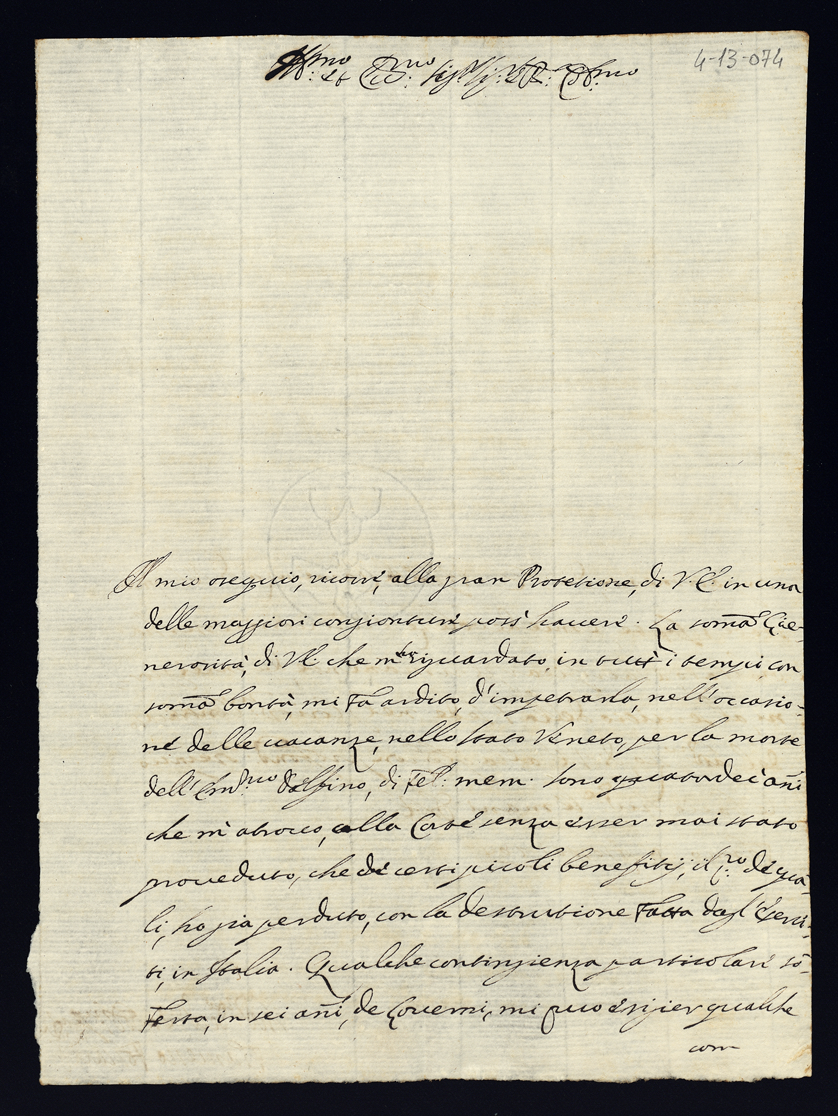 4-13-074
Ill:mo et Ecc:mo Sig:r Sig:r P:ron Col:mo
Il mio osequio, ricorré, alla gran Protetione, di V.E. in una
delle maggiori congionturé poss' haveré. La somã Gie-
nerosità, di VE che m'ha riguardato, in tutti i tempi, con
somã bontà, mi fa ardito, d'impetrarla, nell'occasio-
né delle vacanze, nello stato Veneto, per la morte
dell'Em:mo Delfino, di fel: mem. sono quatordeci añi
che m'atrovo, alla Corté senza ésser mai stato
proveduto, che di certi picoli benefitij, il de qua-
li, ho gia perduto, con la destrutione fatta dagl'éserci-
ti, in Italia. Qualche contingienza particolaré sò-
ferta, in sei añi, de Governi, mi può ésigier qualche
com